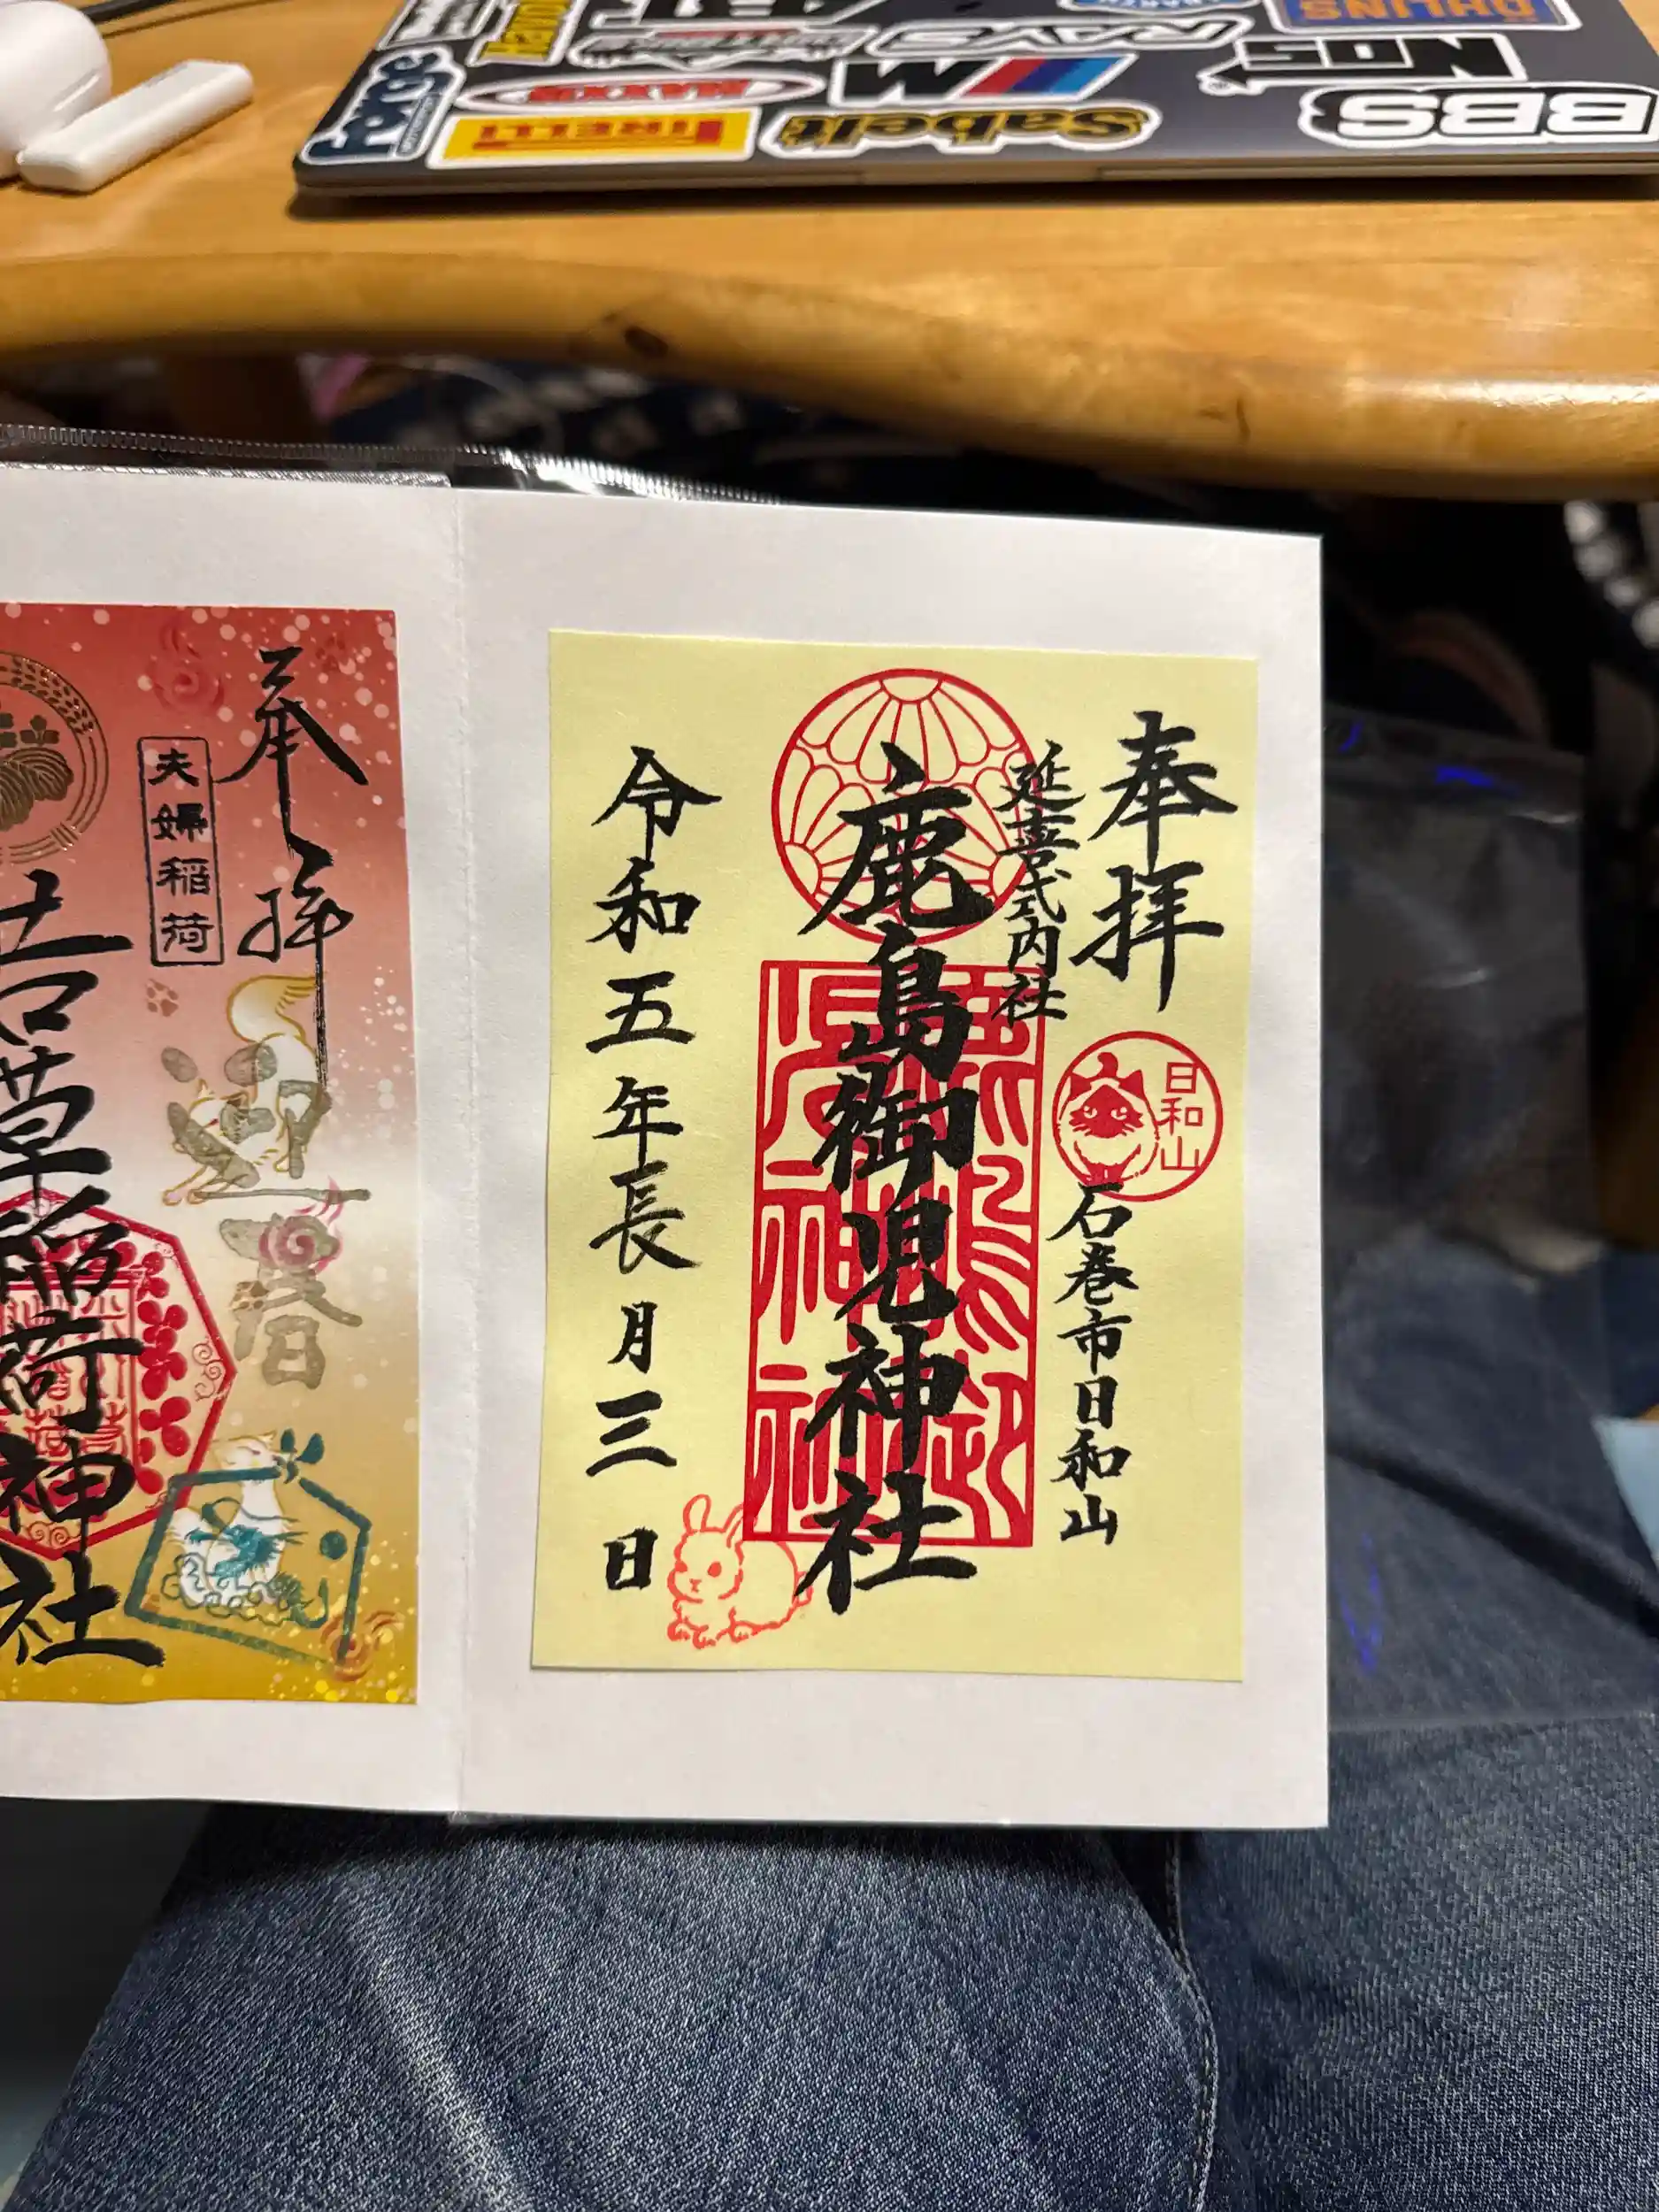 OHLINS
RAYS
NOS
BBS
M
MAXXIS
PIRELLI
Sabelt
奉拝
延喜式内社
鹿島御児神社
日和山
石巻市日和山
令和五年長月三日
奉拝
夫婦稲荷
迎春
吉草稲荷神社